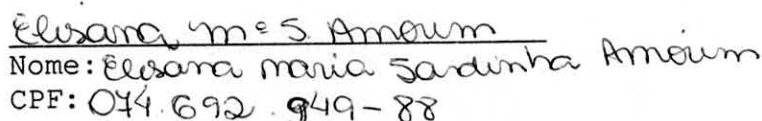 Elisana Mª S. Amorim
Nome: Elisana maria Sardinha Amorim
CPF: 074.692.949-88